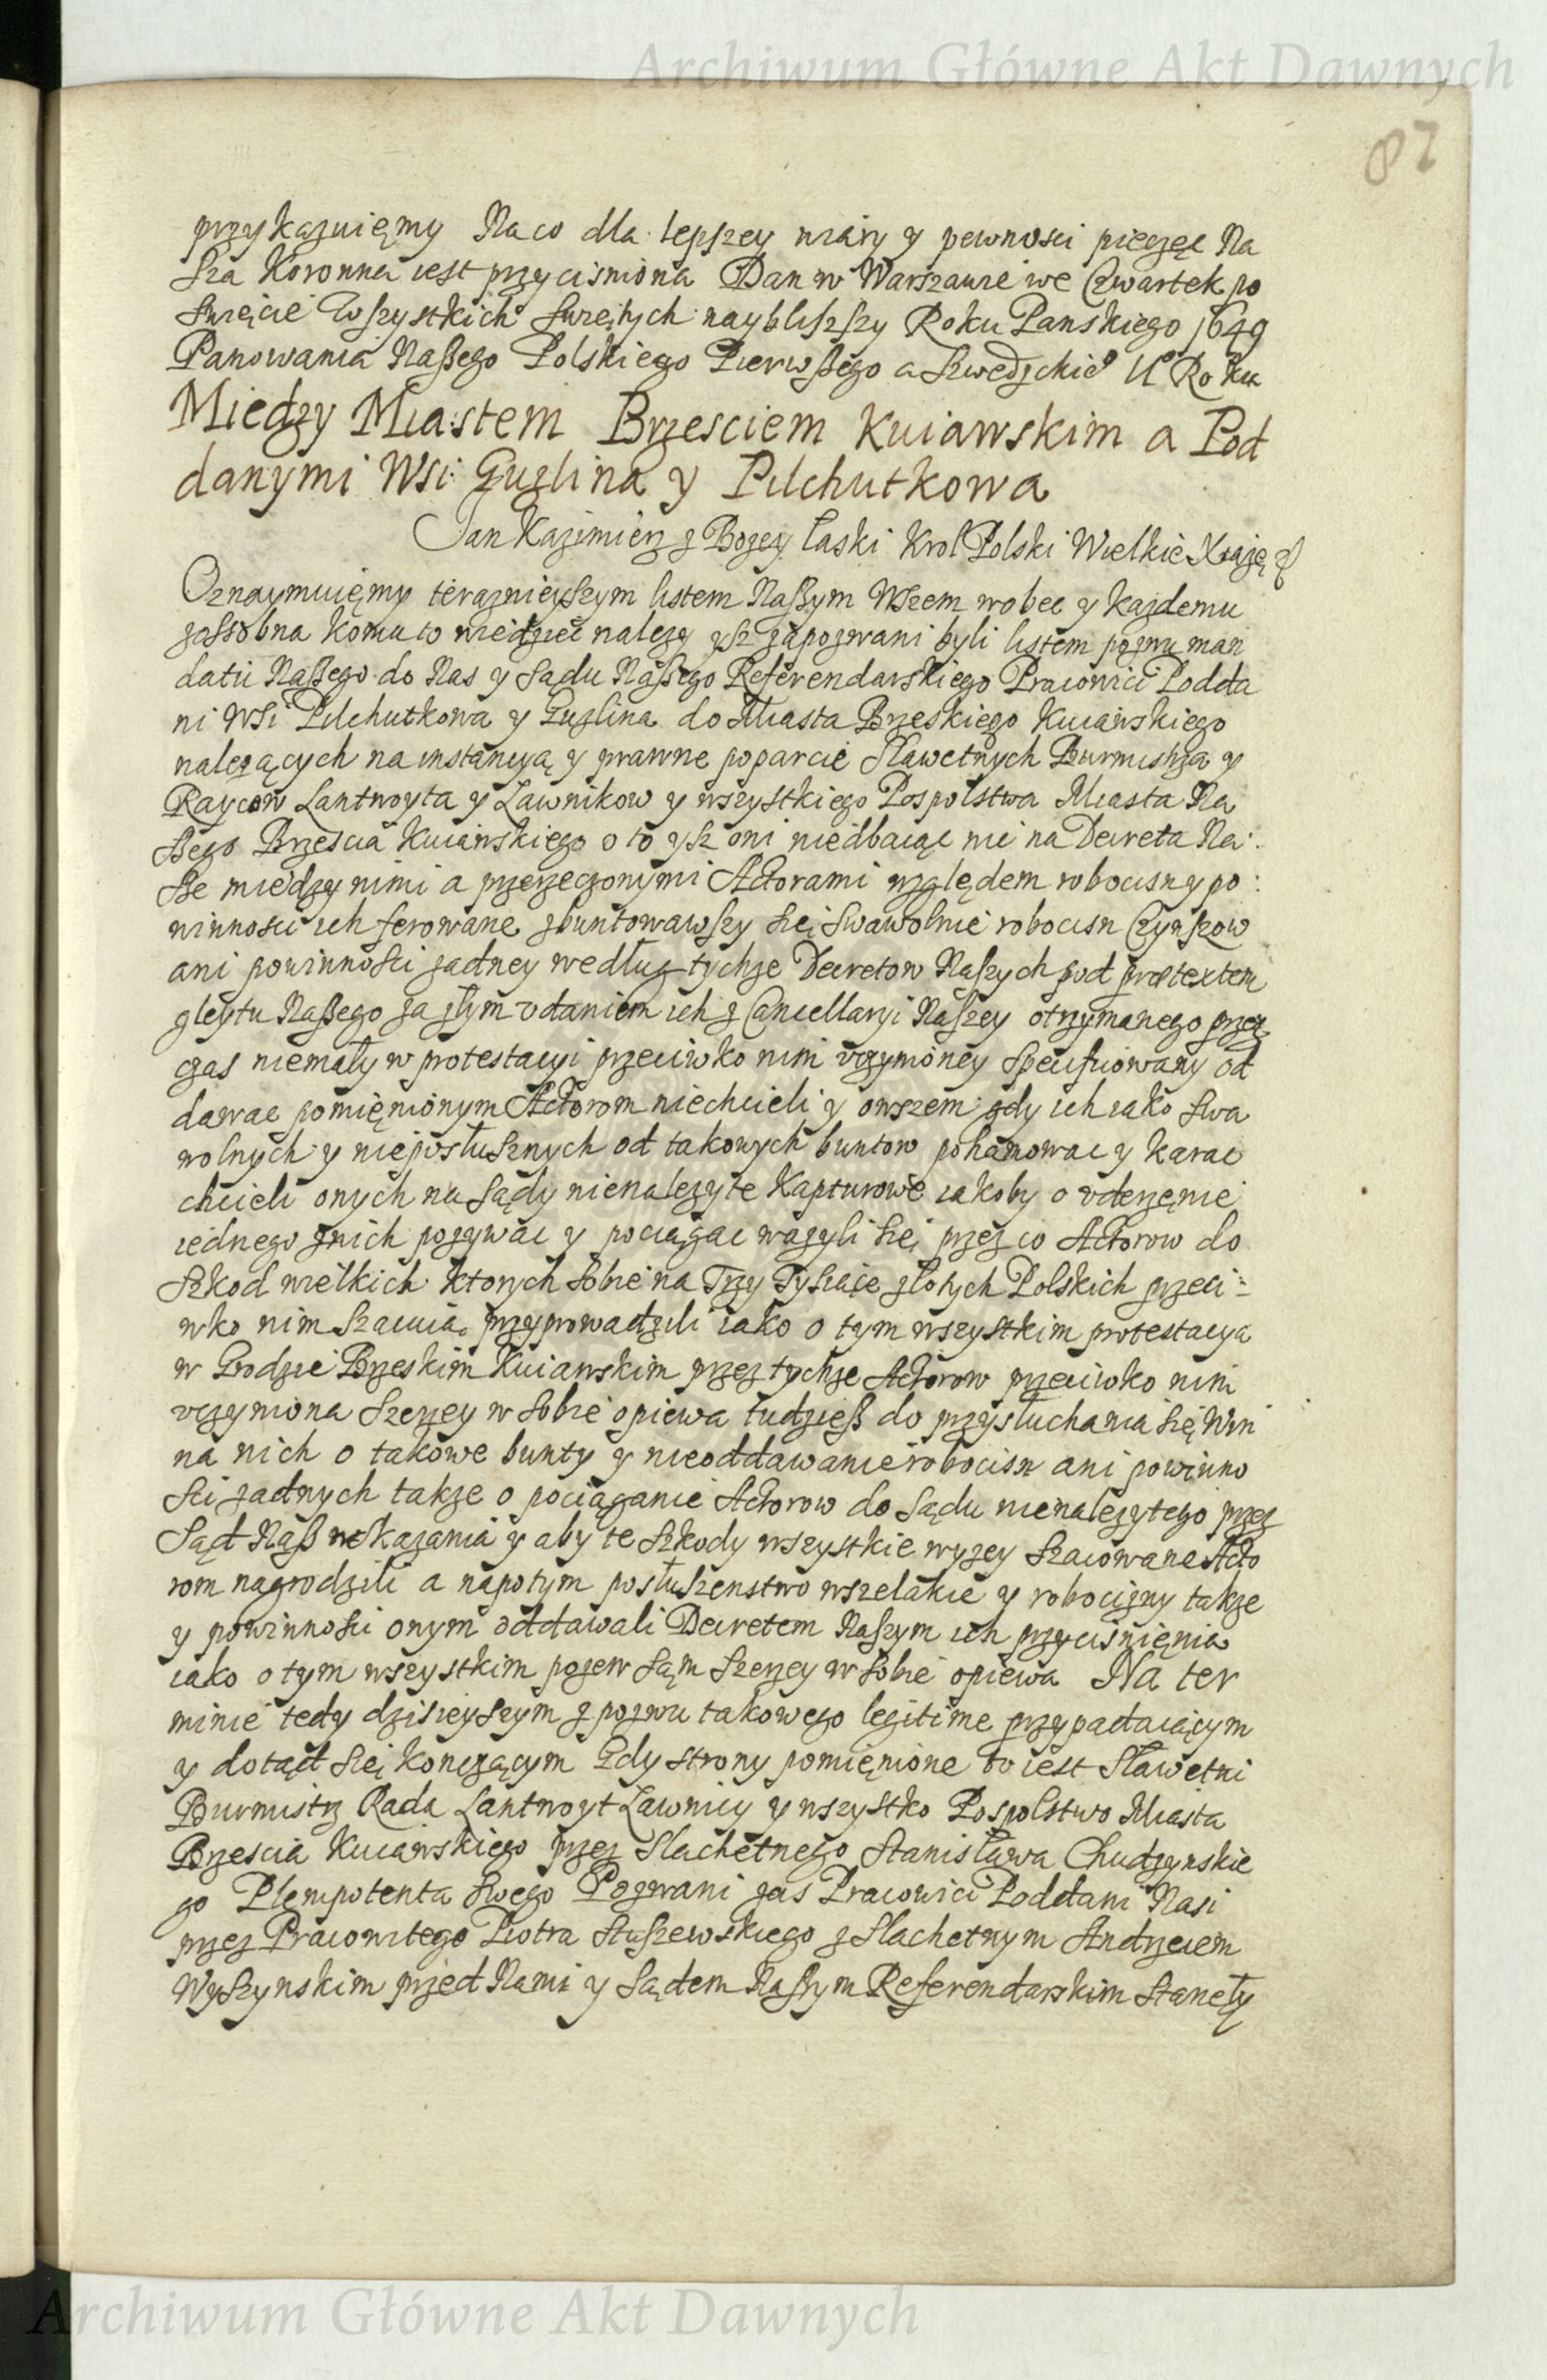 Archiwum Główne Akt Dawnych
87
przykazuięmy Na co dla lepszey wiary y pewnosci pieczęc Na
sza Koronna iest przycisniona Dan w Warszawie we Czwartek po
Swięcie Wszystkich Swiętych naybliszszy Roku Panskiego 1649
Panowania Naßego Polskiego Pierwßego a Szwedzkieo II Roku
Miedzy Miastem Brzesciem Kuiawskim a Pod
danymi Wsi Guzlina y Pilchutkowa
Jan Kazimierz z Bozey Łaski Krol Polski Wielkie Xiążę
Oznaymuięmy teraznieyszym listem Naßym Wszem wobec y kazdemu
zossobna komu to wiedziec nalezy ysz zapozwani byli listem pozwu man
datu Naßego do Nas y Sadu Naßego Referendarskiego Pracowici Podda
ni Wsi Pilchutkowa y Guzlina do Miasta Brzeskiego Kuiawskiego
nalezących na instancyą y prawne poparcie Sławetnych Burmistrza y
Raycow Lantwoyta y Ławnikow y wszystkiego Pospolstwa Miasta Na
ßego Brzescia Kuiawskiego o to ysz oni niedbaiąc nic na Decreta Na
ße miedzy nimi a przerzeczonymi Actorami względem robocisn y po
winnosci ich ferowane zbuntowawszy się swawolnie robocisn Czynszow
ani powinnosci zadney według tychze Decretow Naszych pod praetextem
gleytu Naßego za złym udaniem ich z Cancellaryi Naszey otrzymanego przez
czas niemały w protestacyi przeciwko nim vczynioney specifiowany od
dawac pomięnionym Actorom niechcieli y owszem gdy ich iako swa
wolnych y nieposłusznych od takowych buntow pohamowac y karac
chcieli onych na sądy nienalezyte Kapturowe iakoby o vderzęnie
iednego znich pozywac y pociągac wazyli się przez co Actorow do
Szkod wielkich ktorych sobie na Trzy Tysiące złotych Polskich przeci
wko nim szacuią przyprowadzili iako o tym wszystkim protestacya
w Grodzie Brzeskim Kuiawskim przez tychze Actorow przeciwko nim
vczyniona szerzey w sobie opiewa tudziesz do przysłuchania się Win
na nich o takowe bunty y nieoddawanie robocisn ani powinno
sci zadnych takze o pociąganie Actorow do Sądu nienalezytego przez
Sąd Naß wskazania y aby te szkody wszystkie wyzey szacowane Acto
rom nagrodzili a napotym posłuszenstwo wszelakie y robocizny takze
y powinnosci onym oddawali Decretem Naszym ich przycisnięnia
iako o tym wszystkim pozew sąm szerzey w sobie opiewa Na ter
minie tedy dzisieyszym z pozwu takowego legitime przypadaiącym
y dotąd się konczącym Gdy strony pomięnione to iest Sławetni
Burmistrz Rada Lantwoyt Ławnicy y wszystko Pospolstwo Miasta
Brzescia Kuiawskiego przez Slachetnego Stanisława Chudzynskie
go Plenipotenta swego Pozwani zas Pracowici Poddani Nasi
przez Pracowitego Piotra Stuszewskiego z Slachetnym Andrzeiem
Wyszynskim przed Nami y Sądem Naszym Referendarskim stanęły
Archiwum Główne Akt Dawnych